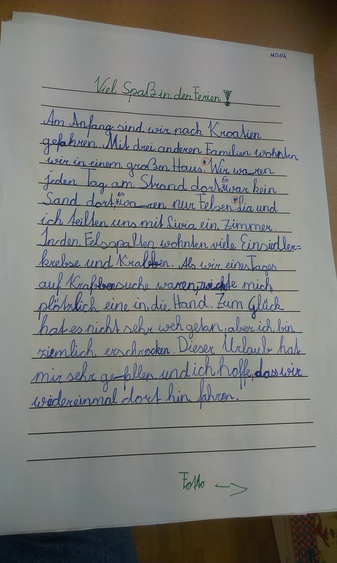 MONA
Viel Spaß in den Ferien!
Am Anfang sind wir nach Kroatien
gefahren. Mit drei anderen Familien wohnten
wir in einem großen Haus. Wir waren
jeden Tag am Strand dort war kein
Sand dort waren nur Felsen. Lia und
ich teilten uns mit Livia ein Zimmer.
In den Felsspalten wohnten viele Einsiedler-
krebse und Krabben. Als wir eines Tages
auf Krabbensuche waren, zwickte mich
plötzlich eine in die Hand. Zum Glück
hat es nicht sehr weh getan, aber ich bin
ziemlich erschrocken. Dieser Urlaub hat
mir sehr gefallen und ich hoffe, dass wir
wieder einmal dort hin fahren.
Foto →